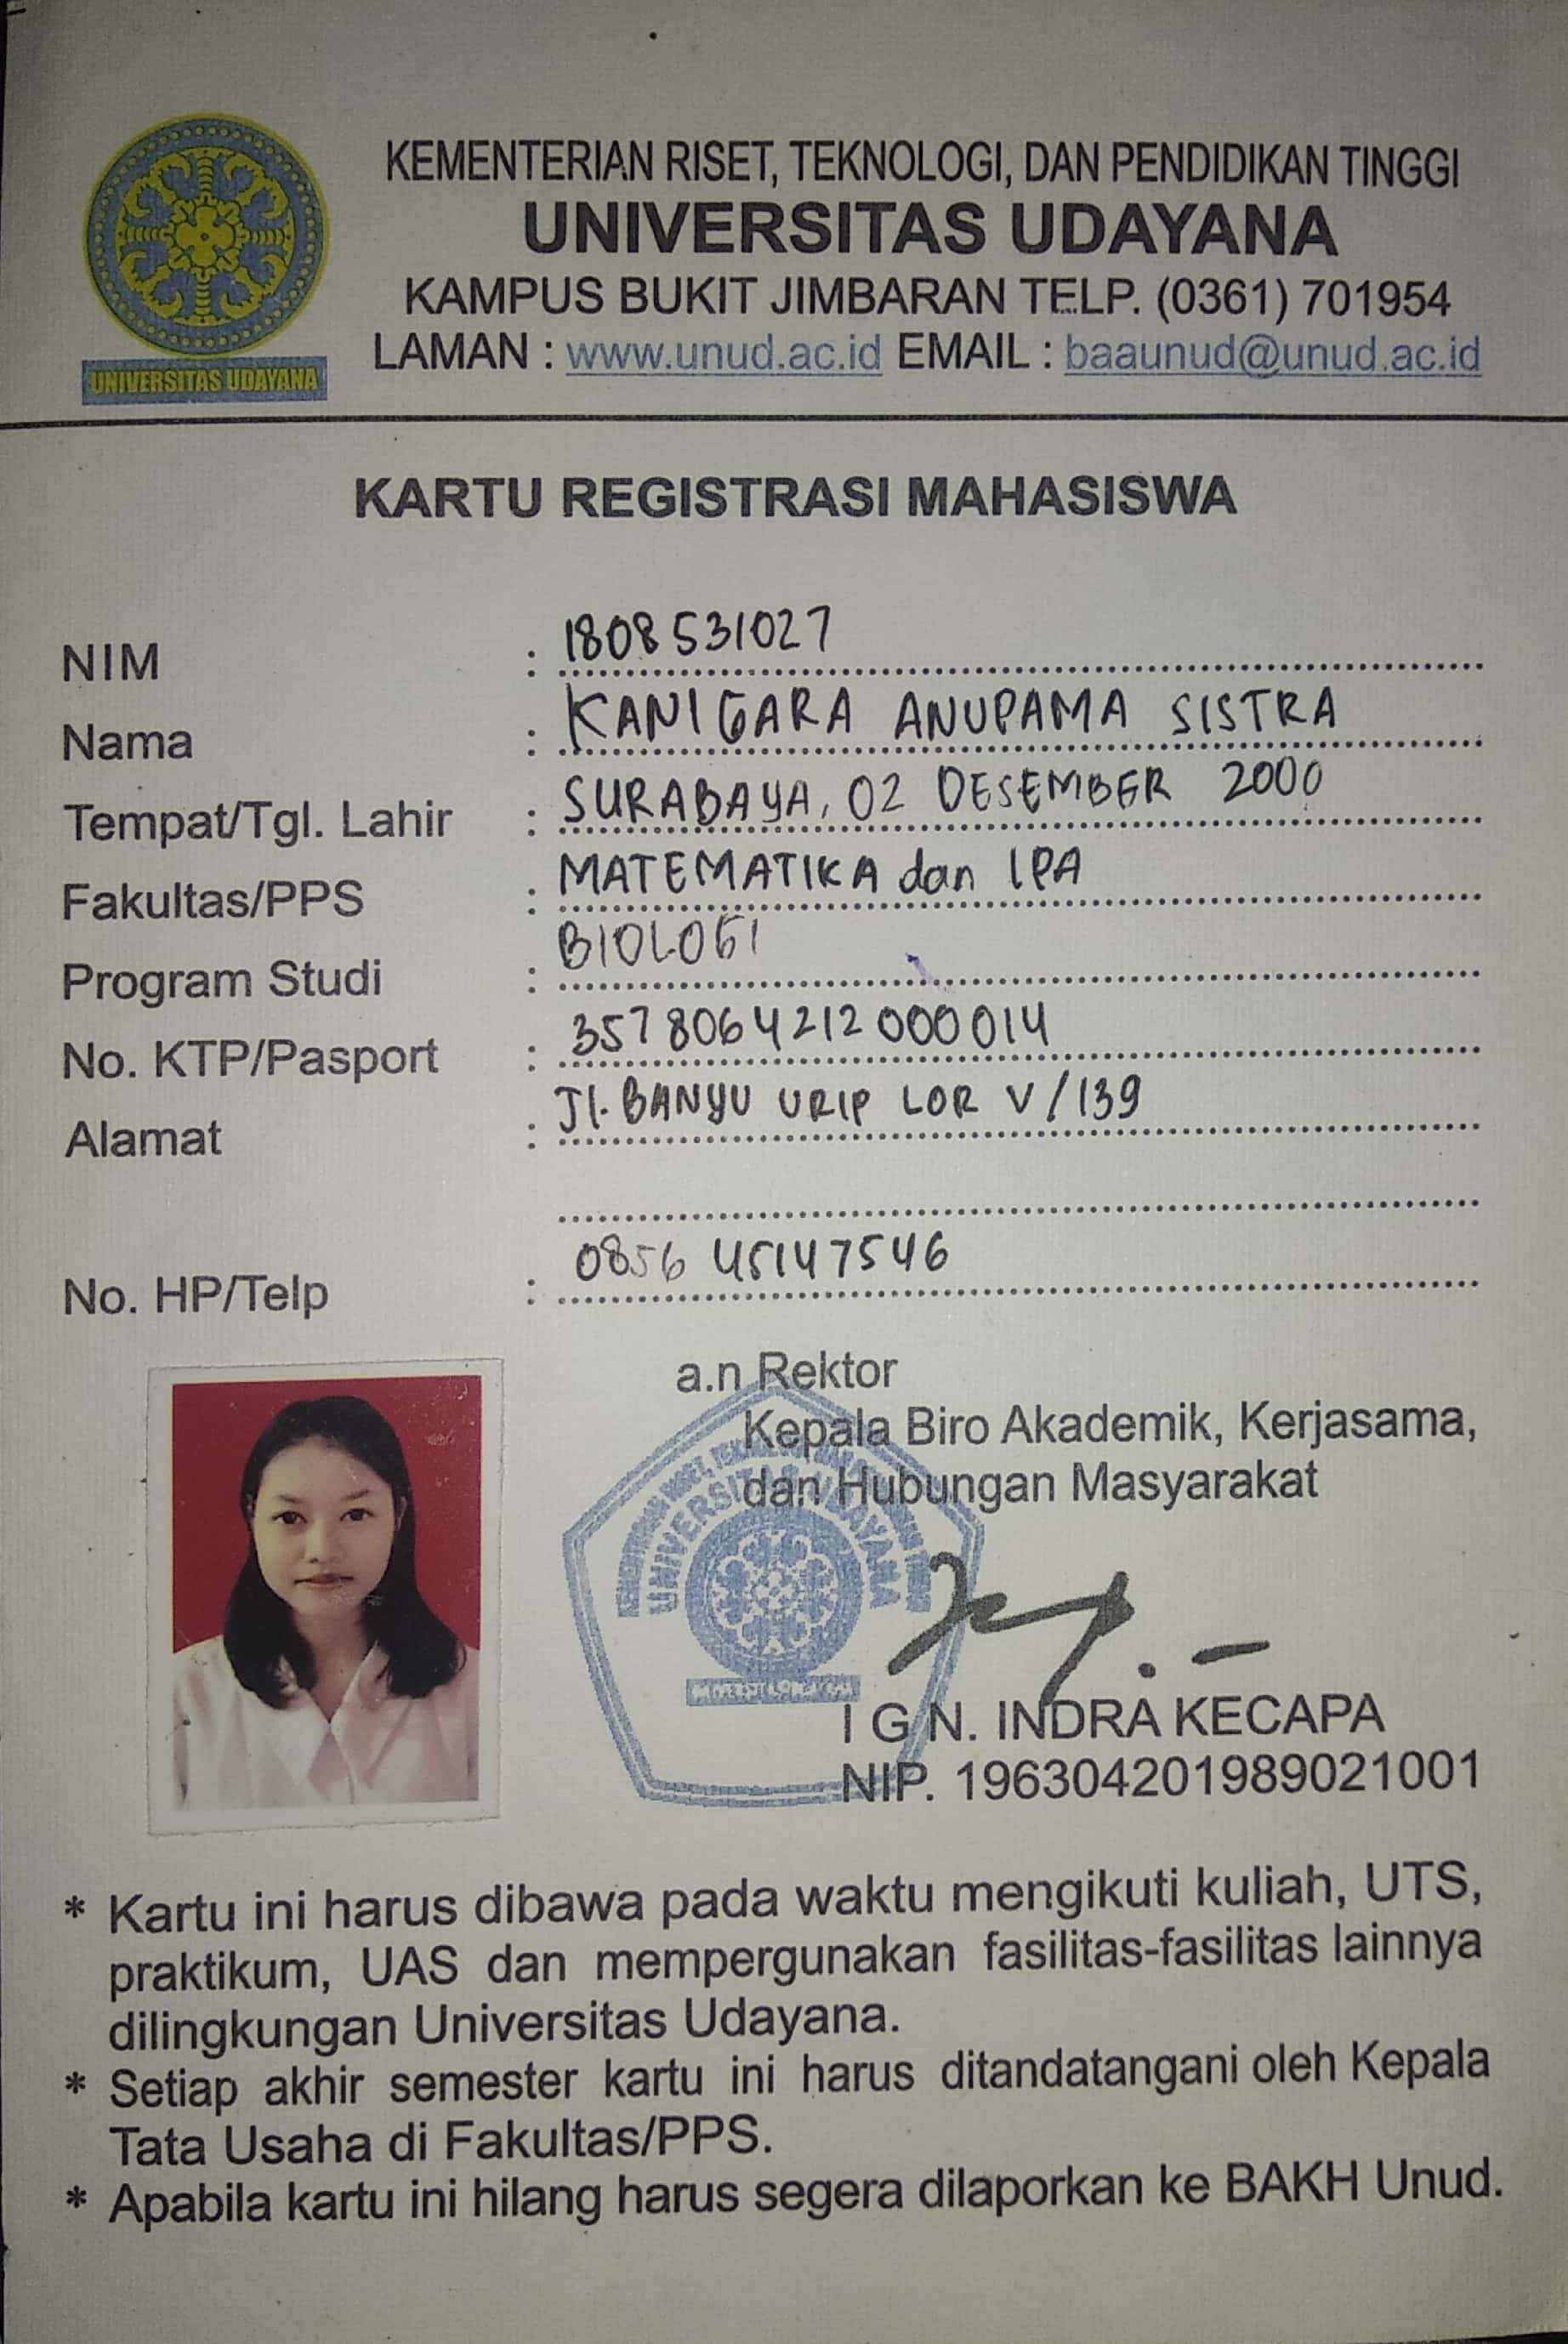 KEMENTERIAN RISET, TEKNOLOGI, DAN PENDIDIKAN TINGGI
UNIVERSITAS UDAYANA
KAMPUS BUKIT JIMBARAN TELP. (0361) 701954
LAMAN : www.unud.ac.id EMAIL : baaunud@unud.ac.id
UNIVERSITAS UDAYANA
KARTU REGISTRASI MAHASISWA
NIM : 1808531027
Nama : KANIGARA ANUPAMA SISTRA
Tempat/Tgl. Lahir : SURABAYA, 02 DESEMBER 2000
Fakultas/PPS : MATEMATIKA dan IPA
Program Studi : BIOLOGI
No. KTP/Pasport : 3578064212000014
Alamat : Jl. BANYU URIP LOR V/139
No. HP/Telp : 0856 45147546
a.n Rektor
Kepala Biro Akademik, Kerjasama,
dan Hubungan Masyarakat
UNIVERSITAS UDAYANA
I G N. INDRA KECAPA
NIP. 196304201989021001
* Kartu ini harus dibawa pada waktu mengikuti kuliah, UTS,
praktikum, UAS dan mempergunakan fasilitas-fasilitas lainnya
dilingkungan Universitas Udayana.
* Setiap akhir semester kartu ini harus ditandatangani oleh Kepala
Tata Usaha di Fakultas/PPS.
* Apabila kartu ini hilang harus segera dilaporkan ke BAKH Unud.